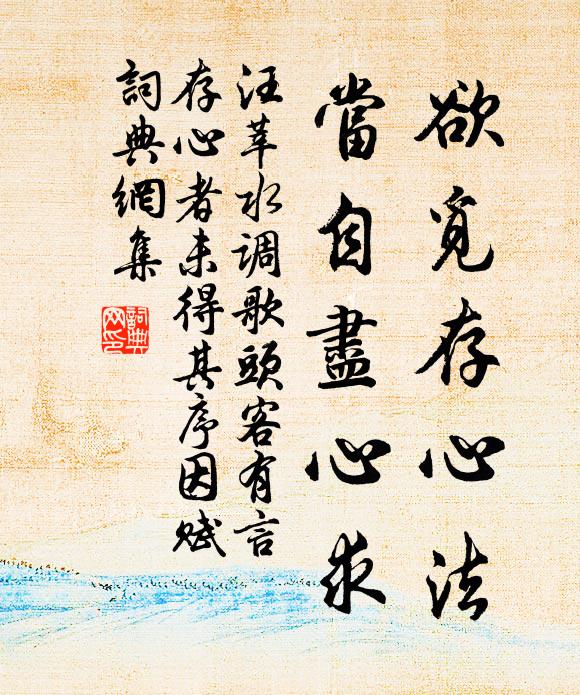 欲覓存心法
當自盡心求
汪莘水調歌頭客有言
存心者未得其序因賦
詞典網集
詞典網印